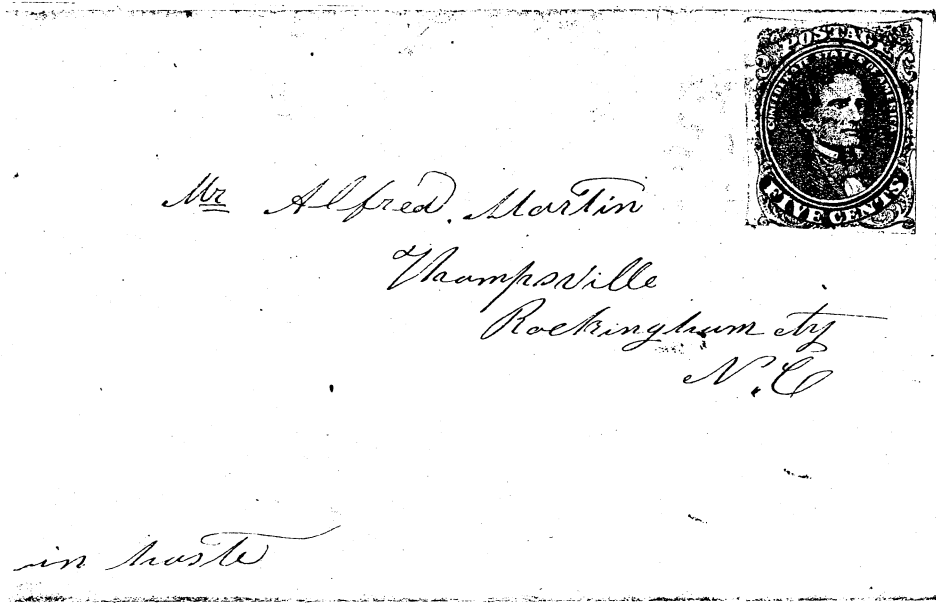 POSTAGE
CONFEDERATE STATES OF AMERICA
FIVE CENTS
Mr Alfred. Martin
Thompsville
Rockingham cty
N.C
in haste